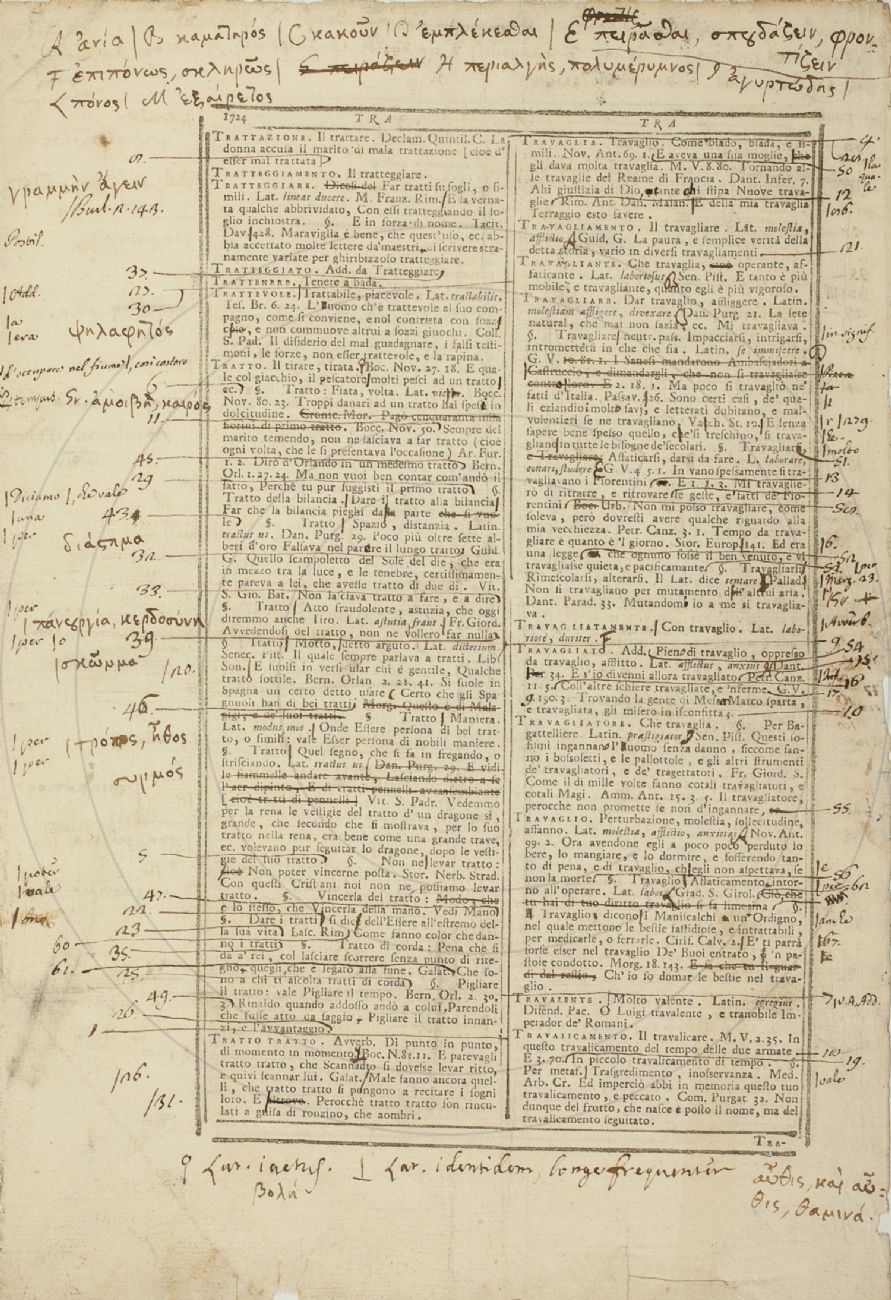 A ἀνία | B καματηρός | C κακοῦν | D ἐμπλέκεσθαι | E πειρᾶσθαι, σπουδάζειν, φρον-
τίζειν
F ἐπιπόνως, σκληρῶς | H περιαλγής, πολυμέρυμνος |
ἀγυρτώδης |
L πόνος | M ἐξαίρετος
1724 TRA TRA
TRATTAZIONE. Il trattare. Declam. Quintil. C. La
donna accusa il marito di mala trattazione [ cioè d'
esser mal trattata
TRATTEGGIAMENTO. Il tratteggiare.
TRATTEGGIARE. Dicesi del Far tratti su fogli, o si-
mili. Lat. lineas ducere. M. Franz. Rim. E la verna-
ta qualche abbrividato, Con essi tratteggiando il fo-
glio inchiostra. §. E in forza di nome. Tacit.
Dav. 428. Maraviglia è bene, che quest'uso, ec. ab-
bia accettato molte lettere da'maestri, qui scrivere stra-
namente variate per ghiribizzoso tratteggiare.
TRATTEGGIATO. Add. da Tratteggiare
TRATTENERE. Tenere a bada.
TRATTEVOLE. Trattabile, piacevole. Lat. tractabilis.
Tes. Br. 6. 23. L'uomo ch'è trattevole al suo com-
pagno, come si conviene, e nol contrista con sozzi
e non commuove altrui a sozzi giuochi. Coll.
S. Pad. Il disiderio del mal guadagnare, i falsi testi-
moni, le forze, non esser trattevole, e la rapina.
TRATTO. Il tirare, tirata. Bocc. Nov. 27. 18. E qua-
le col giacchio, il pescatore molti pesci ad un tratto
ec. §. Tratto: Fiata, volta. Lat. Bocc.
Nov. 80. 23. Troppi danari ad un tratto hai spesi in
dolcitudine. Cronic. Mor. Pagò cinquaranta mila
fiorini di primo tratto. Bocc. Nov. 50. Sempre del
marito temendo, non ne lasciava a far tratto (cioè
ogni volta, che le si presentava l'occasione) Ar. Fur.
1. 2. Dirò d'Orlando in un medesimo tratto. Bern.
Orl. 1. 27. 24. Ma non vuoi ben contar com'andò il
fatto, Perchè tu pur fuggisti il primo tratto §.
Tratto della bilancia. Dare il tratto alla bilancia
Far che la bilancia pieghi da parte che si vuo-
le §. Tratto Spazio, distanzia. Latin.
tractus us. Dan. Purg. 29. Poco più oltre sette al-
beri d'oro Falsava nel parere il lungo tratto Guid.
G. Quello scampoletto del Sole del die, che era
in mezzo tra la luce, e le tenebre, certissimamen-
te pareva a lei, che avesse tratto di due dì. Vit.
S. Gio. Bat. Non la sciava tratto a fare, e a dire
§. Tratto Atto fraudolente, astuzia, che oggi
diremmo anche Tiro. Lat. astutia, fraus. Fr. Giord.
Avvedendosi del tratto, non ne vollero far nulla
§. Tratto Motto, detto arguto. Lat. dicterium.
Senec. Pist. Il quale sempre parlava a tratti. Lib.
Son. E suolsi in versi usar chi è gentile, Qualche
tratto sottile. Bern. Orlan. 2. 21. 41. Si suole in
Ispagna un certo detto usare Certo che gli Spa-
gnuoli han di bei tratti Morg. Questo è di Mala-
gigi, e de' suoi tratti. §. Tratto Maniera.
Lat. modus, mos. Onde Essere persona di bel trat-
to, o simili vale Esser persona di nobili maniere.
§. Tratto: Quel segno, che si fa in fregando, o
strisciando. Lat. tractus us. Dan. Purg. 29. E vidi
le fiammelle andare avante, Lasciando dietro a se
l'aer dipinto, E di tratti pennelli avean sembiante
[ cioè tratti di pennelli ] Vit. S. Padr. Vedemmo
per la rena le vestigie del tratto d'un dragone sì
grande, che secondo che si mostrava, per lo suo
tratto nella rena, era bene come una grande trave,
ec. volevano pur seguitar lo dragone, dopo le vesti-
gie del suo tratto §. Non ne levar tratto:
cioè Non poter vincerne posta. Stor. Nerb. Strad.
Con questi Cristiani noi non ne possiamo levar
tratto. §. Vincerla del tratto: Modo, che
è lo stesso, che Vincerla della mano. Vedi Mano
§. Dare i tratti si dice dell'Essere all'estremo del-
la sua vita Lasc. Rim. Come fanno color che dan-
no i tratti §. Tratto di corda: Pena che si
da a' rei, col lasciare scorrere senza punto di rite-
gno, quegli, che è legato alla fune. Galat. Che so-
no a chi ti ascolta tratti di corda §. Pigliare
il tratto: vale Pigliare il tempo. Bern. Orl. 2. 30.
3. Rinaldo quando addosso andò a colui, Parendoli
che fusse atto da saggio, Pigliare il tratto innan-
zi, e l'avvantaggio
TRATTO TRATTO. Avverb. Di punto in punto,
di momento in momento. Boc. N. 81. 11. E parevagli
tratto tratto, che Scannadio si dovesse levar ritto,
e quivi scannar lui. Galat. Male fanno ancora quel-
li, che tratto tratto si pongono a recitare i sogni
loro. E altrove. Perocchè tratto tratto son rincu-
lati a guisa di ronzino, che aombri.
TRAVAGLIA. Travaglio. Come biado, biada, e si-
mili. Nov. Ant. 69. 1. E aveva una sua moglie, che
gli dava molta travaglia. M. V. 8. 80. Tornando al-
le travaglie del Reame di Francia. Dant. Infer. 7.
Ahi giustizia di Dio, tante chi stipa Nuove trava-
glie Rim. Ant. Dan. Maian. E della mia travaglia
Terraggio esto savere.
TRAVAGLIAMENTO. Il travagliare. Lat. molestia,
afflictio Guid. G. La paura, e semplice verità della
detta storia, varìo in diversi travagliamenti.
TRAVAGLIANTE. Che travaglia, operante, af-
faticante. Lat. laboriosus Sen. Pist. E tanto è più
mobile, e travagliante, quanto egli è più vigoroso.
TRAVAGLIARE. Dar travaglio, affliggere. Latin.
molestiam affligere, divexare Dan. Purg. 21. La sete
natural, che mai non sazia ec. Mi travagliava.
§. Travagliare neutr. pass. Impacciarsi, intrigarsi,
intromettersi in che che sia. Latin. se immiscere.
G. V. 10. 81. 1. I Sanesi mandarono Ambasciadori a
Castruccio, e dimandargli, che non si travagliasse
contro loro. E 2. 18. 1. Ma poco si travagliò ne'
fatti d'Italia. Passav. 26. Sono certi casi, de' qua-
li eziandio i molto savj, e letterati dubitano, e mal-
volentieri se ne travagliano. Varch. St. 10. E senza
sapere bene spesso quello, che si treschino, si trava-
gliano in tutte le bisogne de' secolari. §. Travagliare
e Travagliare, Affaticarsi, darsi da fare. L. laborare,
conari, studere. G. V. 4. 5. 1. In vano spesamente si tra-
vagliavano i Fiorentini ec. E 1. 1. 3. Mi travaglie-
rò di ritrarre, e ritrovare le geste, e' fatti de' Fio-
rentini Boc. Urb. Non mi posso travagliare, come
soleva, però dovresti avere qualche riguardo alla
mia vecchiezza. Petr. Canz. 3. 1. Tempo da trava-
gliare è quanto è 'l giorno. Stor. Europ. 141. Ed era
una legge che ognuno fosse il ben venuto, e vi
travagliasse quieta, e pacificamente §. Travagliarsi
Rimescolarsi, alterarsi. Il Lat. dice Pallad.
Non si travagliano per mutamento dell'altrui aria.
Dant. Parad. 33. Mutandom' io a me si travaglia-
va.
TRAVAGLIATAMENTE. Con travaglio. Lat. labo-
riose, duriter.
TRAVAGLIATO. Add. Pien di travaglio, oppresso
da travaglio, afflitto. Lat. afflictus, anxius Dant.
Par 34. E s'io divenni allora travagliato Petr. Canz.
11. 5. Coll'altre schiere travagliate, e 'nferme. G. V.
9. 190. 3. Trovando la gente di Messer Marco sparta,
e travagliata, gli misero in isconfitta.
TRAVAGLIATORE. Che travaglia. §. Per Ba-
gattelliere. Latin. præstigiator Sen. Pist. Questi so-
fismi ingannano l'uomo senza danno, siccome fan-
no i bossoletti, e le pallottole, e gli altri strumenti
de' travagliatori, e de' tragettatori. Fr. Giord. S.
Come il dì mille volte fanno cotali travagliatori, e
cotali Magi. Amm. Ant. 15. 3. 5. Il travagliatore,
perocche non promette se non d'ingannare,
TRAVAGLIO. Perturbazione, molestia, sollecitudine,
affanno. Lat. molestia, afflictio, anxietas Nov. Ant.
99. 2. Ora avendone egli a poco poco perduto lo
bere, lo mangiare, e lo dormire, e sofferendo tan-
to di pena, e di travaglio, ch'egli non aspettava, se
non la morte §. Travaglio Affaticamento intor-
no all'operare. Lat. labor Grad. S. Girol. Ciò, che
tu hai di tuo diritto travaglio si fa limosina §.
Travaglio dicono i Maniscalchi a un Ordigno,
nel quale mettono le bestie fastidiose, e intrattabili,
per medicarle, o ferrarle. Cirif. Calv. 2. E' ti parrà
forse esser nel travaglio De' Buoi entrato, e 'n pa-
stoie condotto. Morg. 18. 143. E fa che tu ti guar-
di dal rossio, Ch' io so domar le bestie nel trava-
glio.
TRAVALENTE. Molto valente. Latin. egregius
Difend. Pac. O Luigi travalente, e tranobile Im-
perador de' Romani.
TRAVALICAMENTO. Il travalicare. M. V. 2. 35. In
questo travalicamento del tempo delle due armate
E 3. 70. In piccolo travalicamento di tempo §.
Per metaf. Trasgredimento, inosservanza. Med.
Arb. Cr. Ed imperciò abbi in memoria questo tuo
travalicamento, e peccato. Com. Purgat. 32. Non
dunque del frutto, che nasce è posto il nome, ma del
travalicamento seguitato.
TRA-
γραμμὴν ἄγειν
ψηλαφητός
ἀμοιβή, καιρός
διάστημα
πανουργία, κερδοσύνη
σκῶμμα
τρόπος, ἦθος
συρμός
Lat. iactus. Lat. identidem, longe frequenter
βολά
αὖθις, καὶ αὖ-
θις, θαμινά.